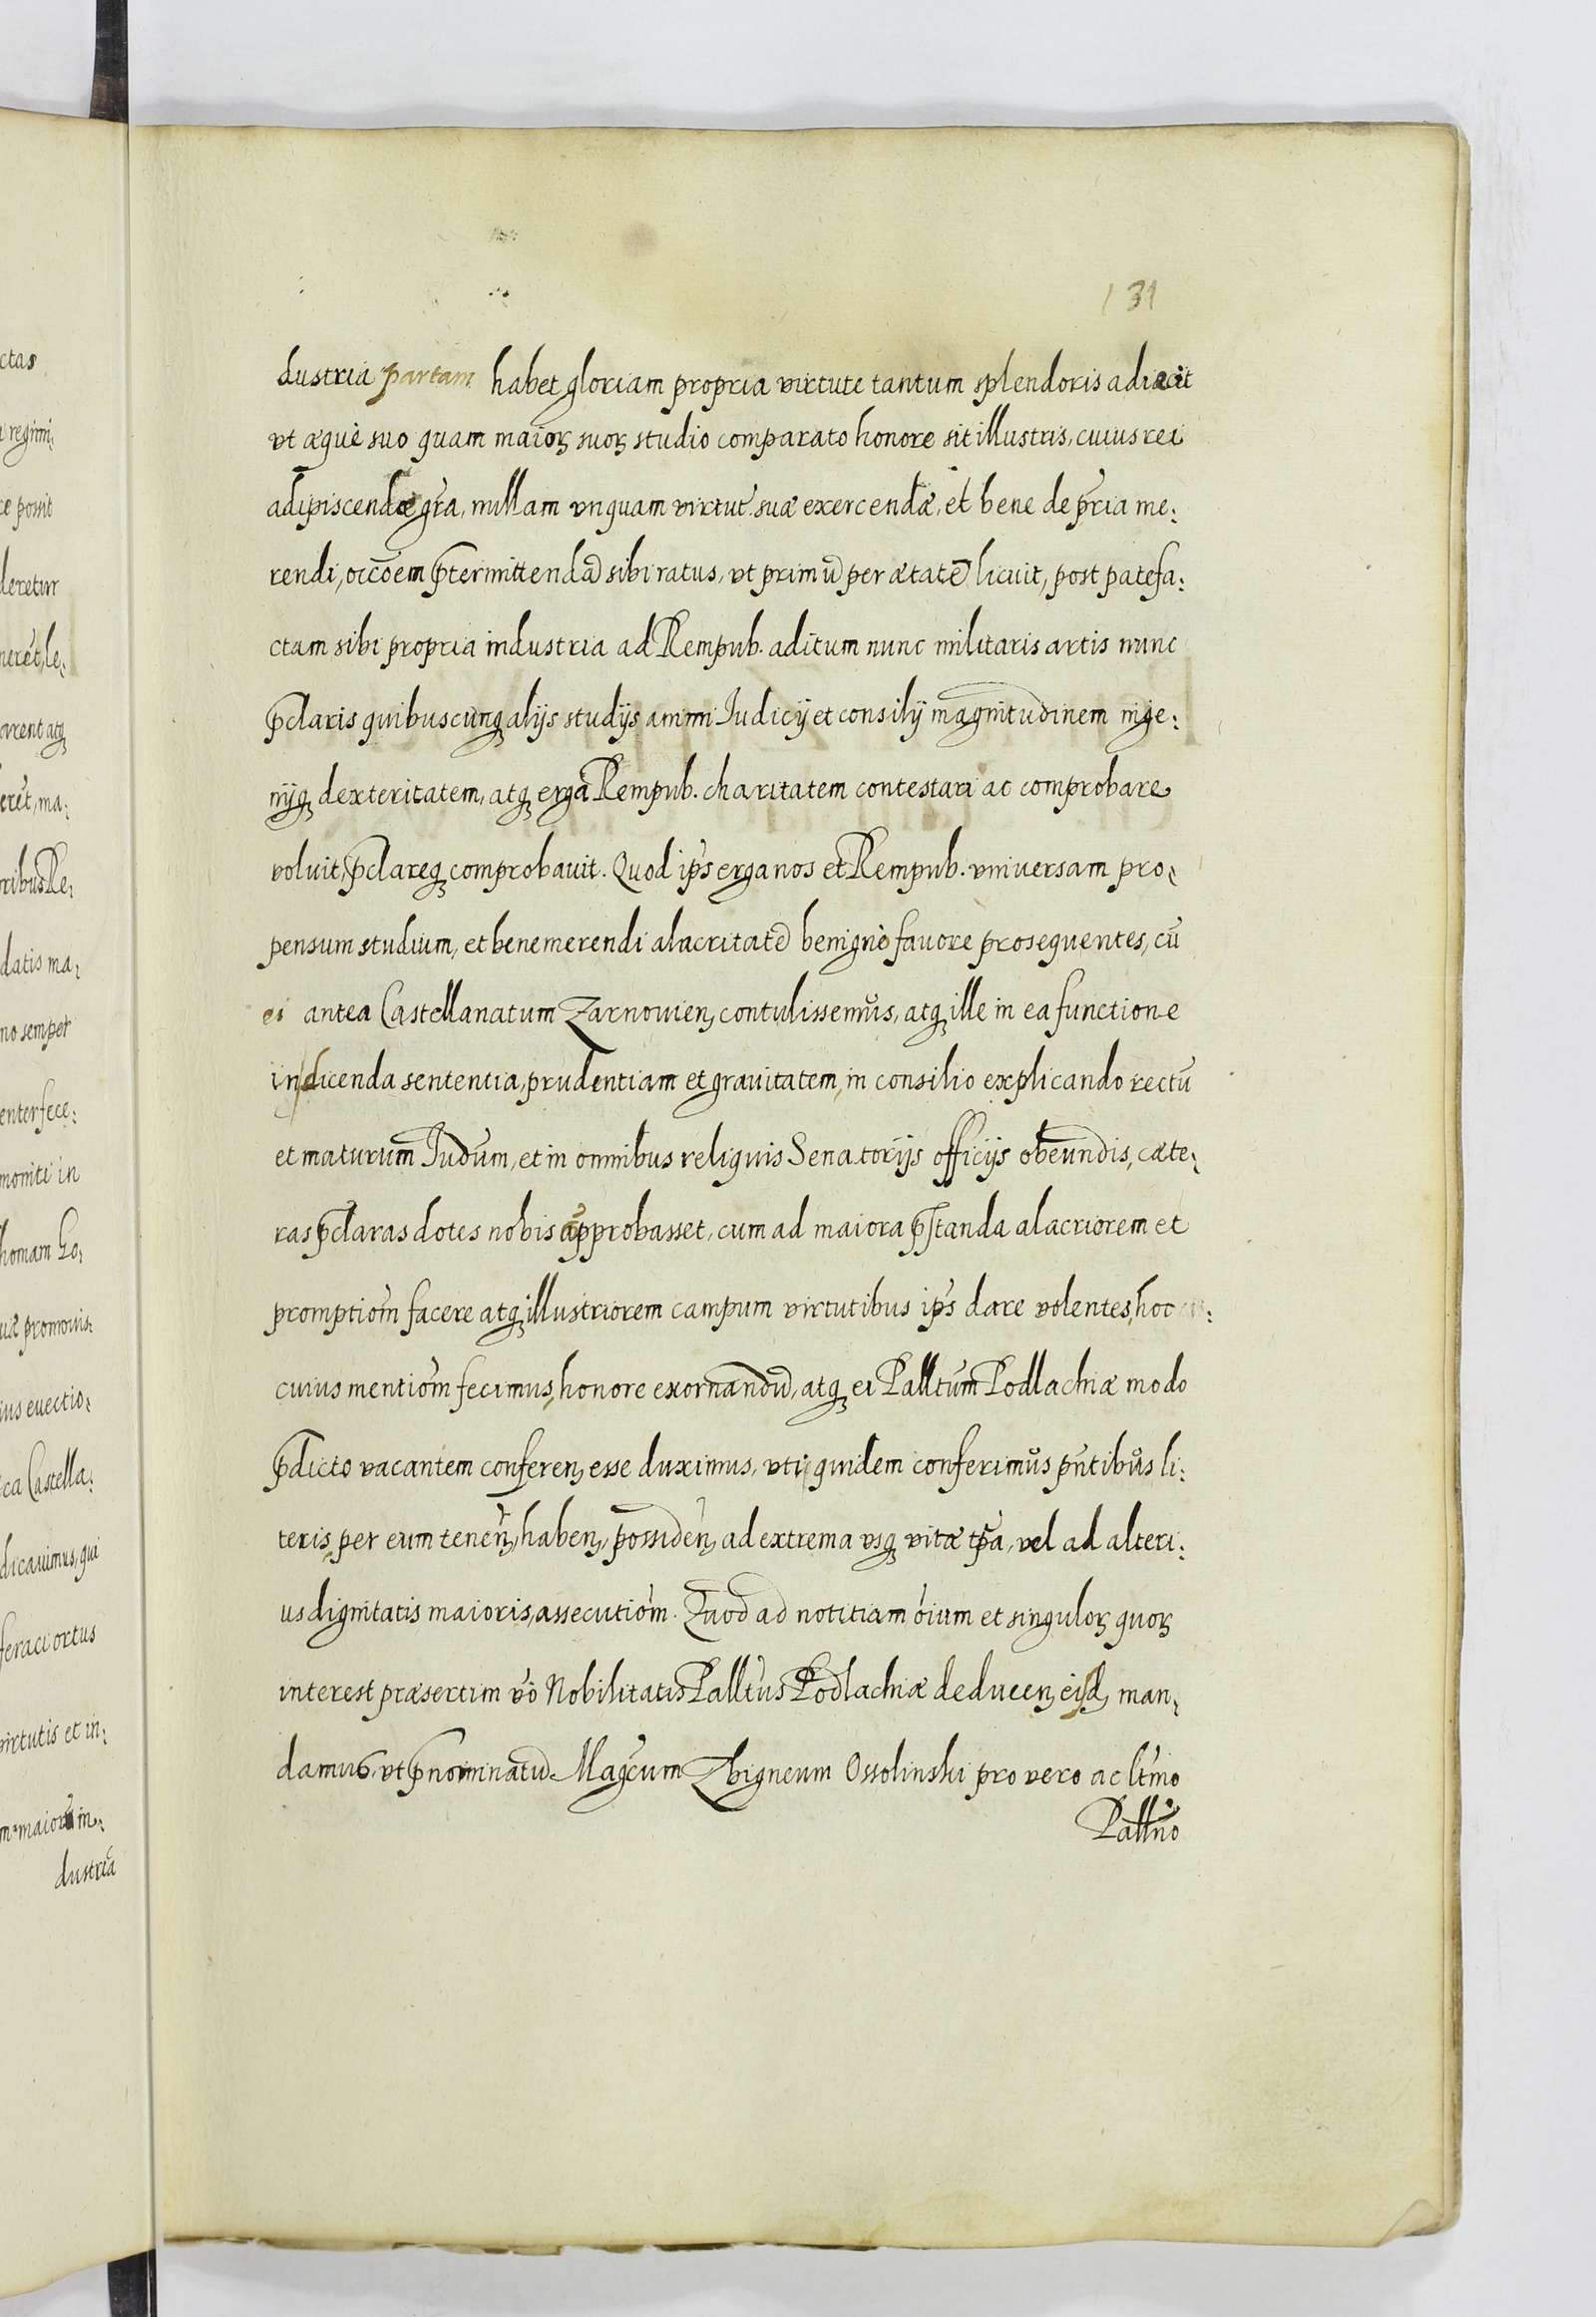 ctas
a regimi;
ce possit
deretur
neret, le;
arent atq
eret, ma;
oribus Re;
datis ma;
no semper
enter fece;
moniti in
homam Go;
uæ promouis;
ius euectio;
ica Castella;
dicauimus, qui
feraci ortus
virtutis et in;
m maioru in;
dustria
131
dustria partam habet gloriam propria virtute tantum splendoris adiecit
vt æquè suo quam maioꝝ suoꝝ studio comparato honore sit illustris, cuius rei
adipiscendæ gr̃a, nullam vnquam virtut. suæ exercendæ, et bene de pr̃ia me;
rendi, occõem p̃termittendã sibi ratus, vt primũ per ætatẽ licuit, post patefa;
ctam sibi propria industria ad Rempub. aditum nunc militaris artis nunc
p̃claris quibuscunqꝫ alijs studijs animi Iudicij et consilij magnitudinem inge;
nijqꝫ dexteritatem, atqꝫ erga Rempub. charitatem contestari ac comprobare
voluit, p̃clareqꝫ comprobauit. Quod ip̃s erga nos et Rempub. vniuersam pro;
pensum studium, et benemerendi alacritatẽ benignè fauore prosequentes, cũ
ei antea Castellanatum Zarnouien, contulissemus, atqꝫ ille in ea functione
in dicenda sententia, prudentiam et grauitatem, in consilio explicando rectũ
et maturum Iud̃um, et in omnibus reliquis Senatorijs officijs obeundis, cæte;
ras p̃claras dotes nobis approbasset, cum ad maiora p̃standa alacriorem et
promptiõm facere atqꝫ illustriorem campum virtutibus ip̃s dare volentes, hoc
cuius mentiõm fecimus, honore exornandũ, atqꝫ ei Palltũm Podlachiæ modo
p̃dicto vacantem conferen, esse duximus, vti quidem conferimus pñtibus li;
teris, per eum teneñ, haben, possideñ, ad extrema vsqꝫ vitæ tp̃a, vel ad alteri;
us dignitatis maioris, assecutiõm. Quod ad notitiam õium et singuloꝝ quoꝝ
interest præsertim võ Nobilitatis Palltũs Podlachiæ deducen, eisd, man;
damus, vt p̃nominatũ Mag̃cum Zbigneum Ossolinski pro vero ac lt̃mo
Pallño